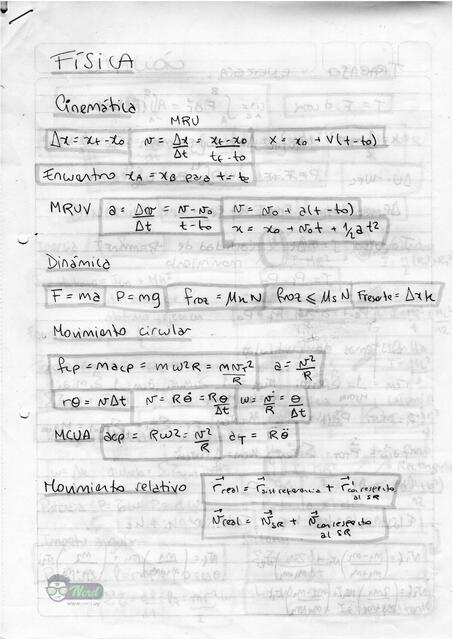 FÍSICA
Cinemática
MRU
Δx = xf - x0   v = Δx/Δt = xf - x0/tf - t0   x = x0 + v(t - t0)
Encuentro xA = xB para t = te
MRUV a = Δv/Δt = v - v0/t - t0   v = v0 + a(t - t0)
x = x0 + v0t + 1/2 at²
Dinámica
F = ma   P = mg   froz = μk N   froz ⩽ μs N   Fresorte = Δx k
Movimiento circular
fcp = macp = mω²R = mvT²/R   a = v²/R
rθ = vΔt   v = Rθ̇ = Rθ/Δt   ω = v/R = θ/Δt
MCUA acp = Rω² = v²/R   aT = Rθ̈
Movimiento relativo   r⃗real = r⃗sist referencia + r⃗con respecto al SR
v⃗real = v⃗SR + v⃗con respecto al SR
Nerd